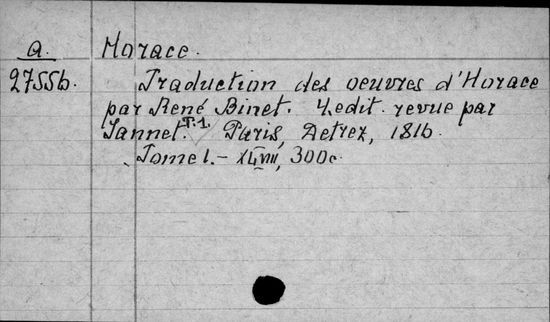 a.
Horace.
27556.
Traduction des oeuvres d'Horace
par René Binet. 4. edit. revue par
Jannet. T.1. Paris, Detrez, 1816.
Tome 1. - XLVIII, 300c.